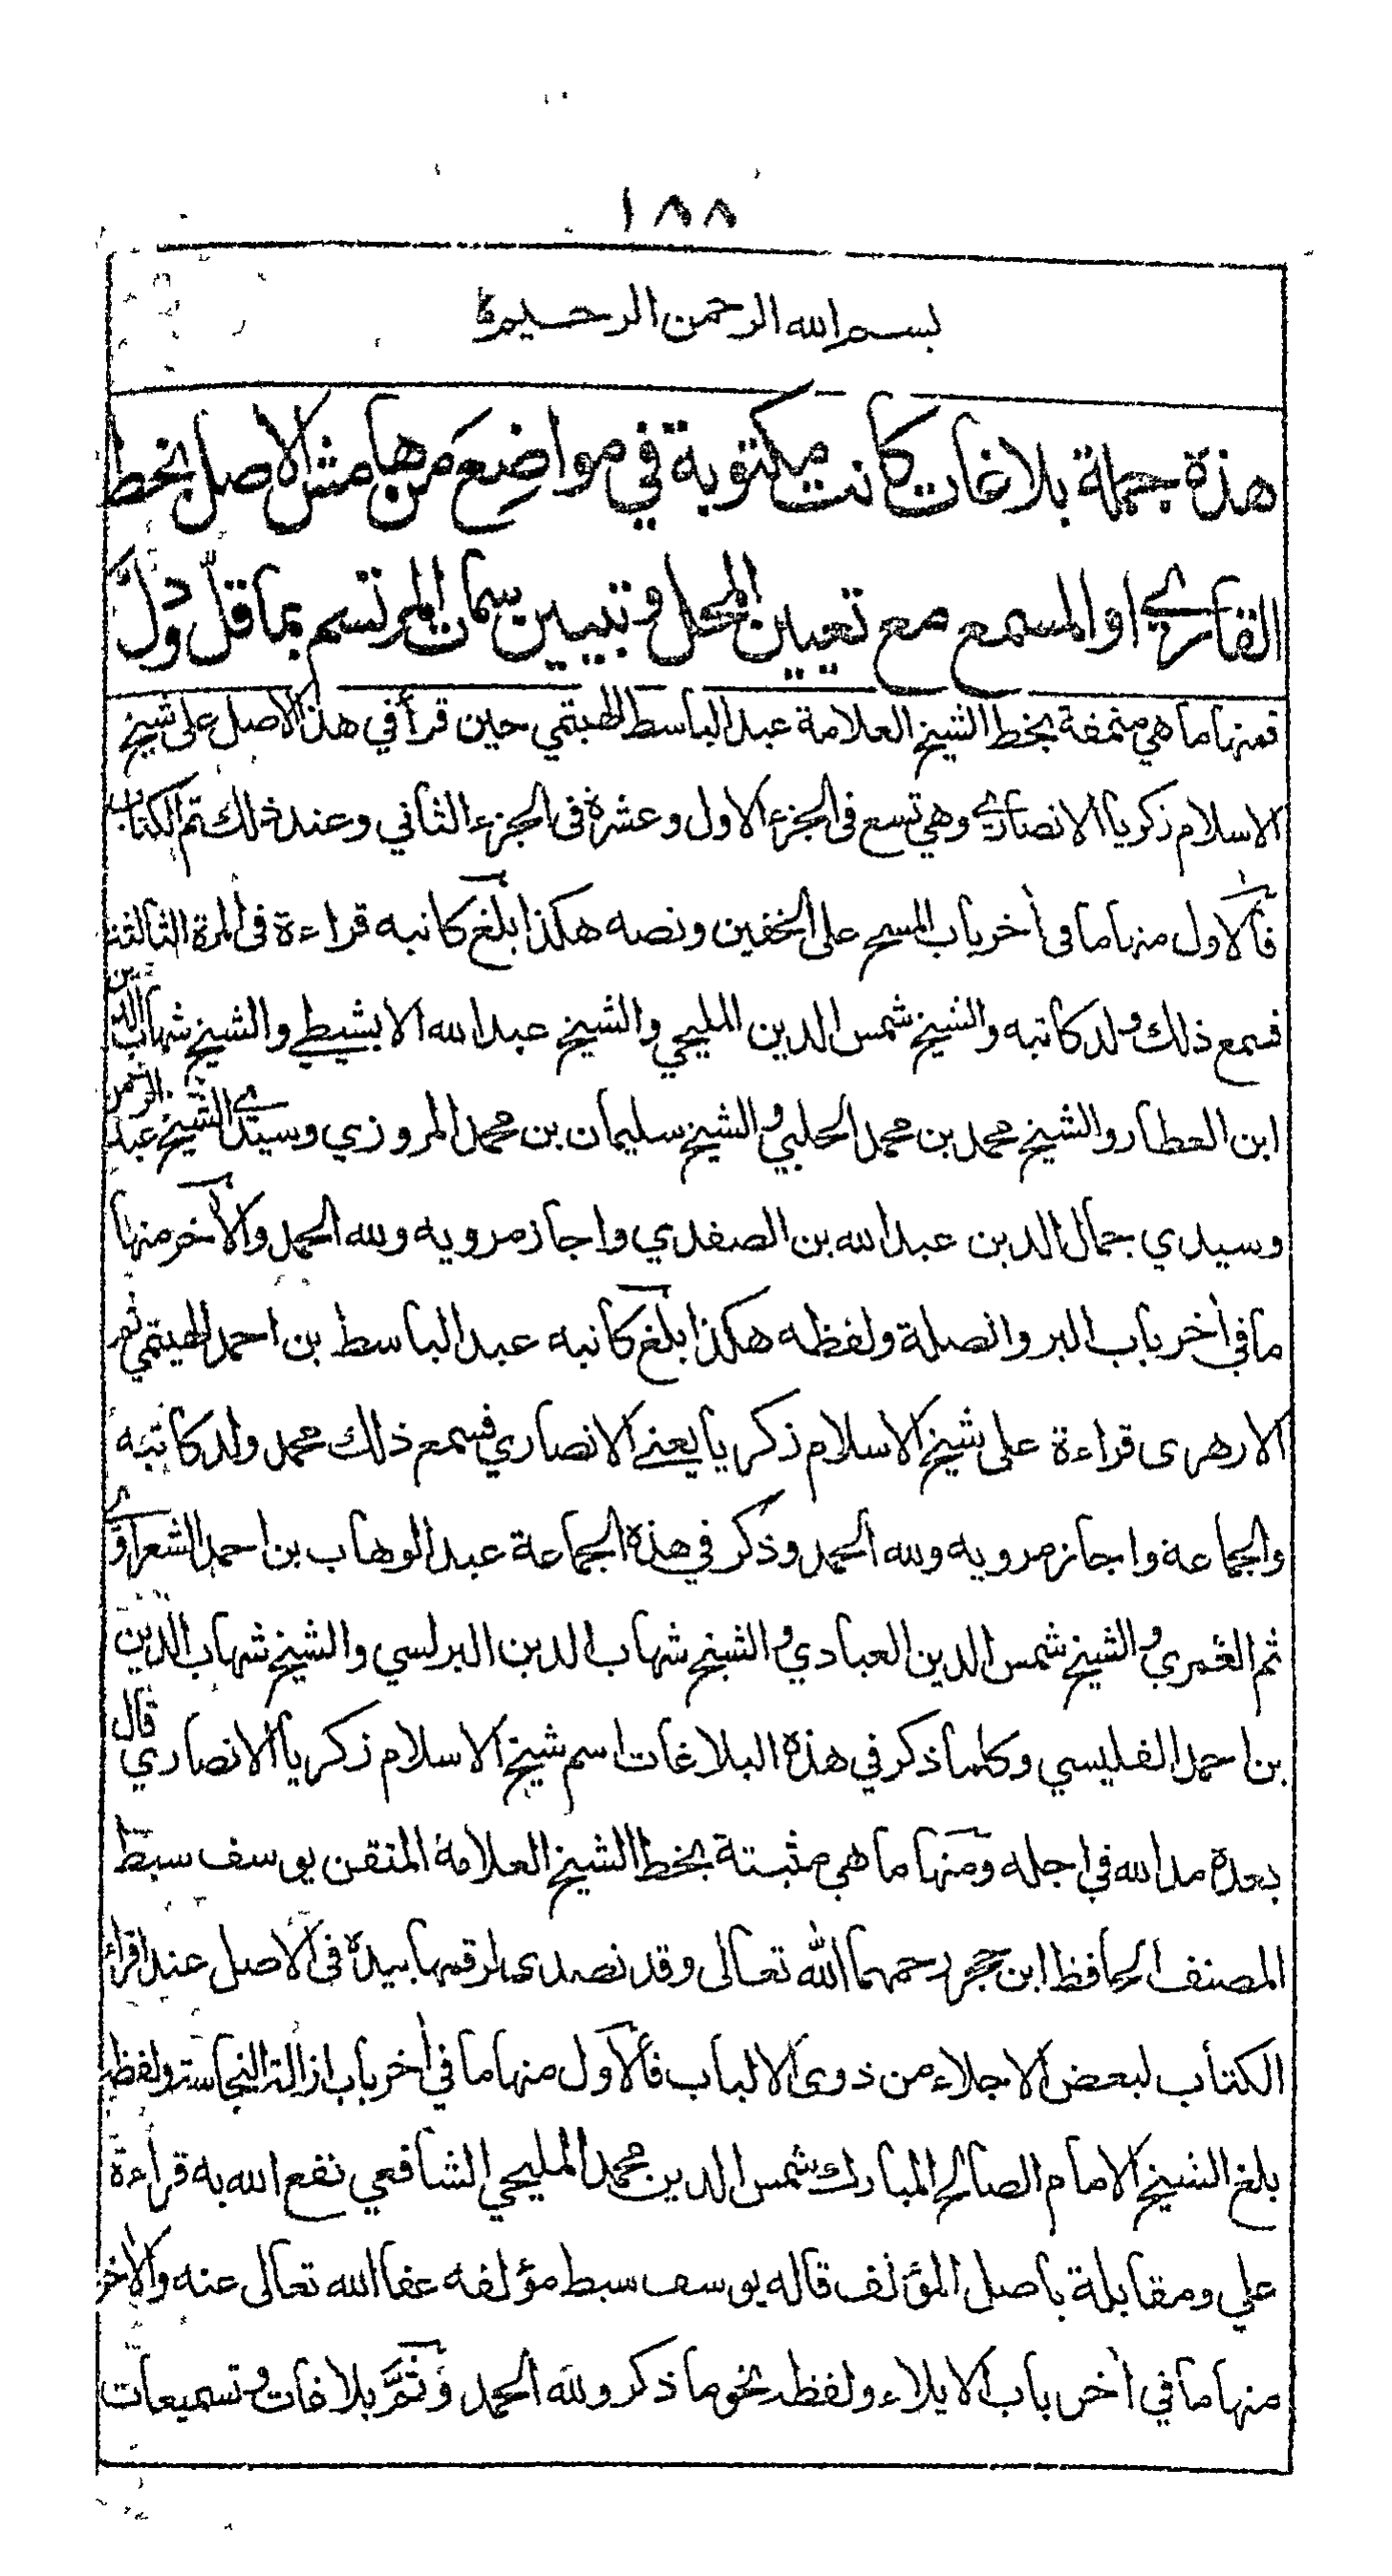 ١٨٨
بسم الله الرحمن الرحيم
هذة جملة بلاغات كانت مكتوبة في مواضع من هامش الاصل بخط
القاري او المسمع مع تعيين المحل وتبيين سمات المرتسم بما قل ودل
فمنها ما هي منمقة بخط الشيخ العلامة عبد الباسط الهيتمي حين قرأ في هذا الاصل على شيخ
الاسلام زكريا الانصاري وهي تسع فى الجزء الاول وعشرة فى الجزء الثاني وعند ذلك تم الكتاب
فالاول منها ما فى أخر باب المسح على الخفين ونصه هكذا بلغ كاتبه قراءة فى المرة الثالثة
فسمع ذلك ولد كاتبه والشيخ شمس الدين المليجي والشيخ عبد الله الابشيطي والشيخ شهاب الدين
ابن العطار والشيخ محمد بن محمد الحلبي والشيخ سليمان بن محمد المروزي وسيدي الشيخ عبد الرحمن
وسيدي جمال الدين عبد الله بن الصفدي واجاز مرويه ولله الحمد والآخر منها
ما في أخر باب البر والصلة ولفظه هكذا بلغ كاتبه عبد الباسط بن احمد الهيتمي ثم
الازهرى قراءة على شيخ الاسلام زكريا يعني الانصاري فسمع ذلك محمد ولد كاتبه
والجماعة واجاز مرويه ولله الحمد وذكر في هذه الجماعة عبد الوهاب بن احمد الشعراوي
ثم الغمري والشيخ شمس الدين العبادي والشيخ شهاب الدين البرلسي والشيخ شهاب الدين
بن احمد الفليسي وكلما ذكر في هذه البلاغات اسم شيخ الاسلام زكريا الانصاري قال
بعدة مد الله في اجله ومنها ما هي مثبتة بخط الشيخ العلامة المتقن يوسف سبط
المصنف الحافظ ابن حجر رحمهما الله تعالى وقد تصدى لرقمها بيدة فى الاصل عند اقراء
الكتاب لبعض الاجلاء من ذوى الالباب فالأول منها ما في أخر باب ازالة النجاسة ولفظه
بلغ الشيخ الامام الصالح المبارك شمس الدين محمد المليجي الشافعي نفع الله به قراءة
علي ومقابلة باصل المؤلف قاله يوسف سبط مؤلفه عفا الله تعالى عنه والاخر
منها ما في أخر باب الايلاء ولفظه نحو ما ذكر ولله الحمد وثم بلاغات وتسميعات